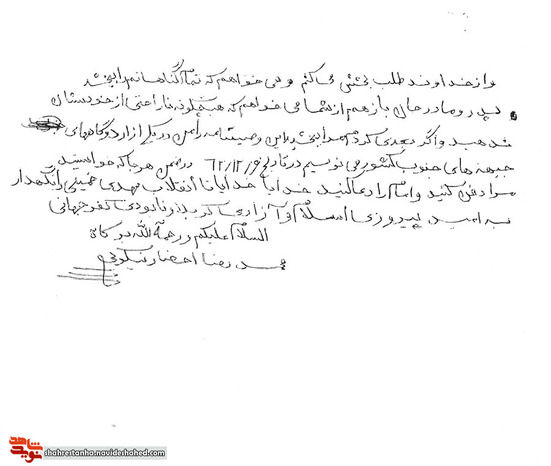 و از خداوند طلب بخشش می کنم و می خواهم که تمام گناهانم را ببخشد
پدر و مادر جان باز هم از شما می خواهم که هیچگونه ناراحتی از خودتان
ندهید و اگر بدی کرده‌ام مرا ببخشید این وصیتنامه را من در یکی از اردوگاههای
جبهه های جنوب کشور می نویسم در تاریخ ۶۲/۱۲/۶ در ضمن هر جا که خواستید
مرا دفن کنید و امام را دعا کنید خدایا خدایا تا انقلاب مهدی خمینی را نگهدار
به امید پیروزی اسلام و آزادی کربلا و نابودی کفر جهانی
السلام علیکم و رحمة الله برکاة
محمد رضا نیکویی
نوید شاهد
shahrestanha.navideshahed.com